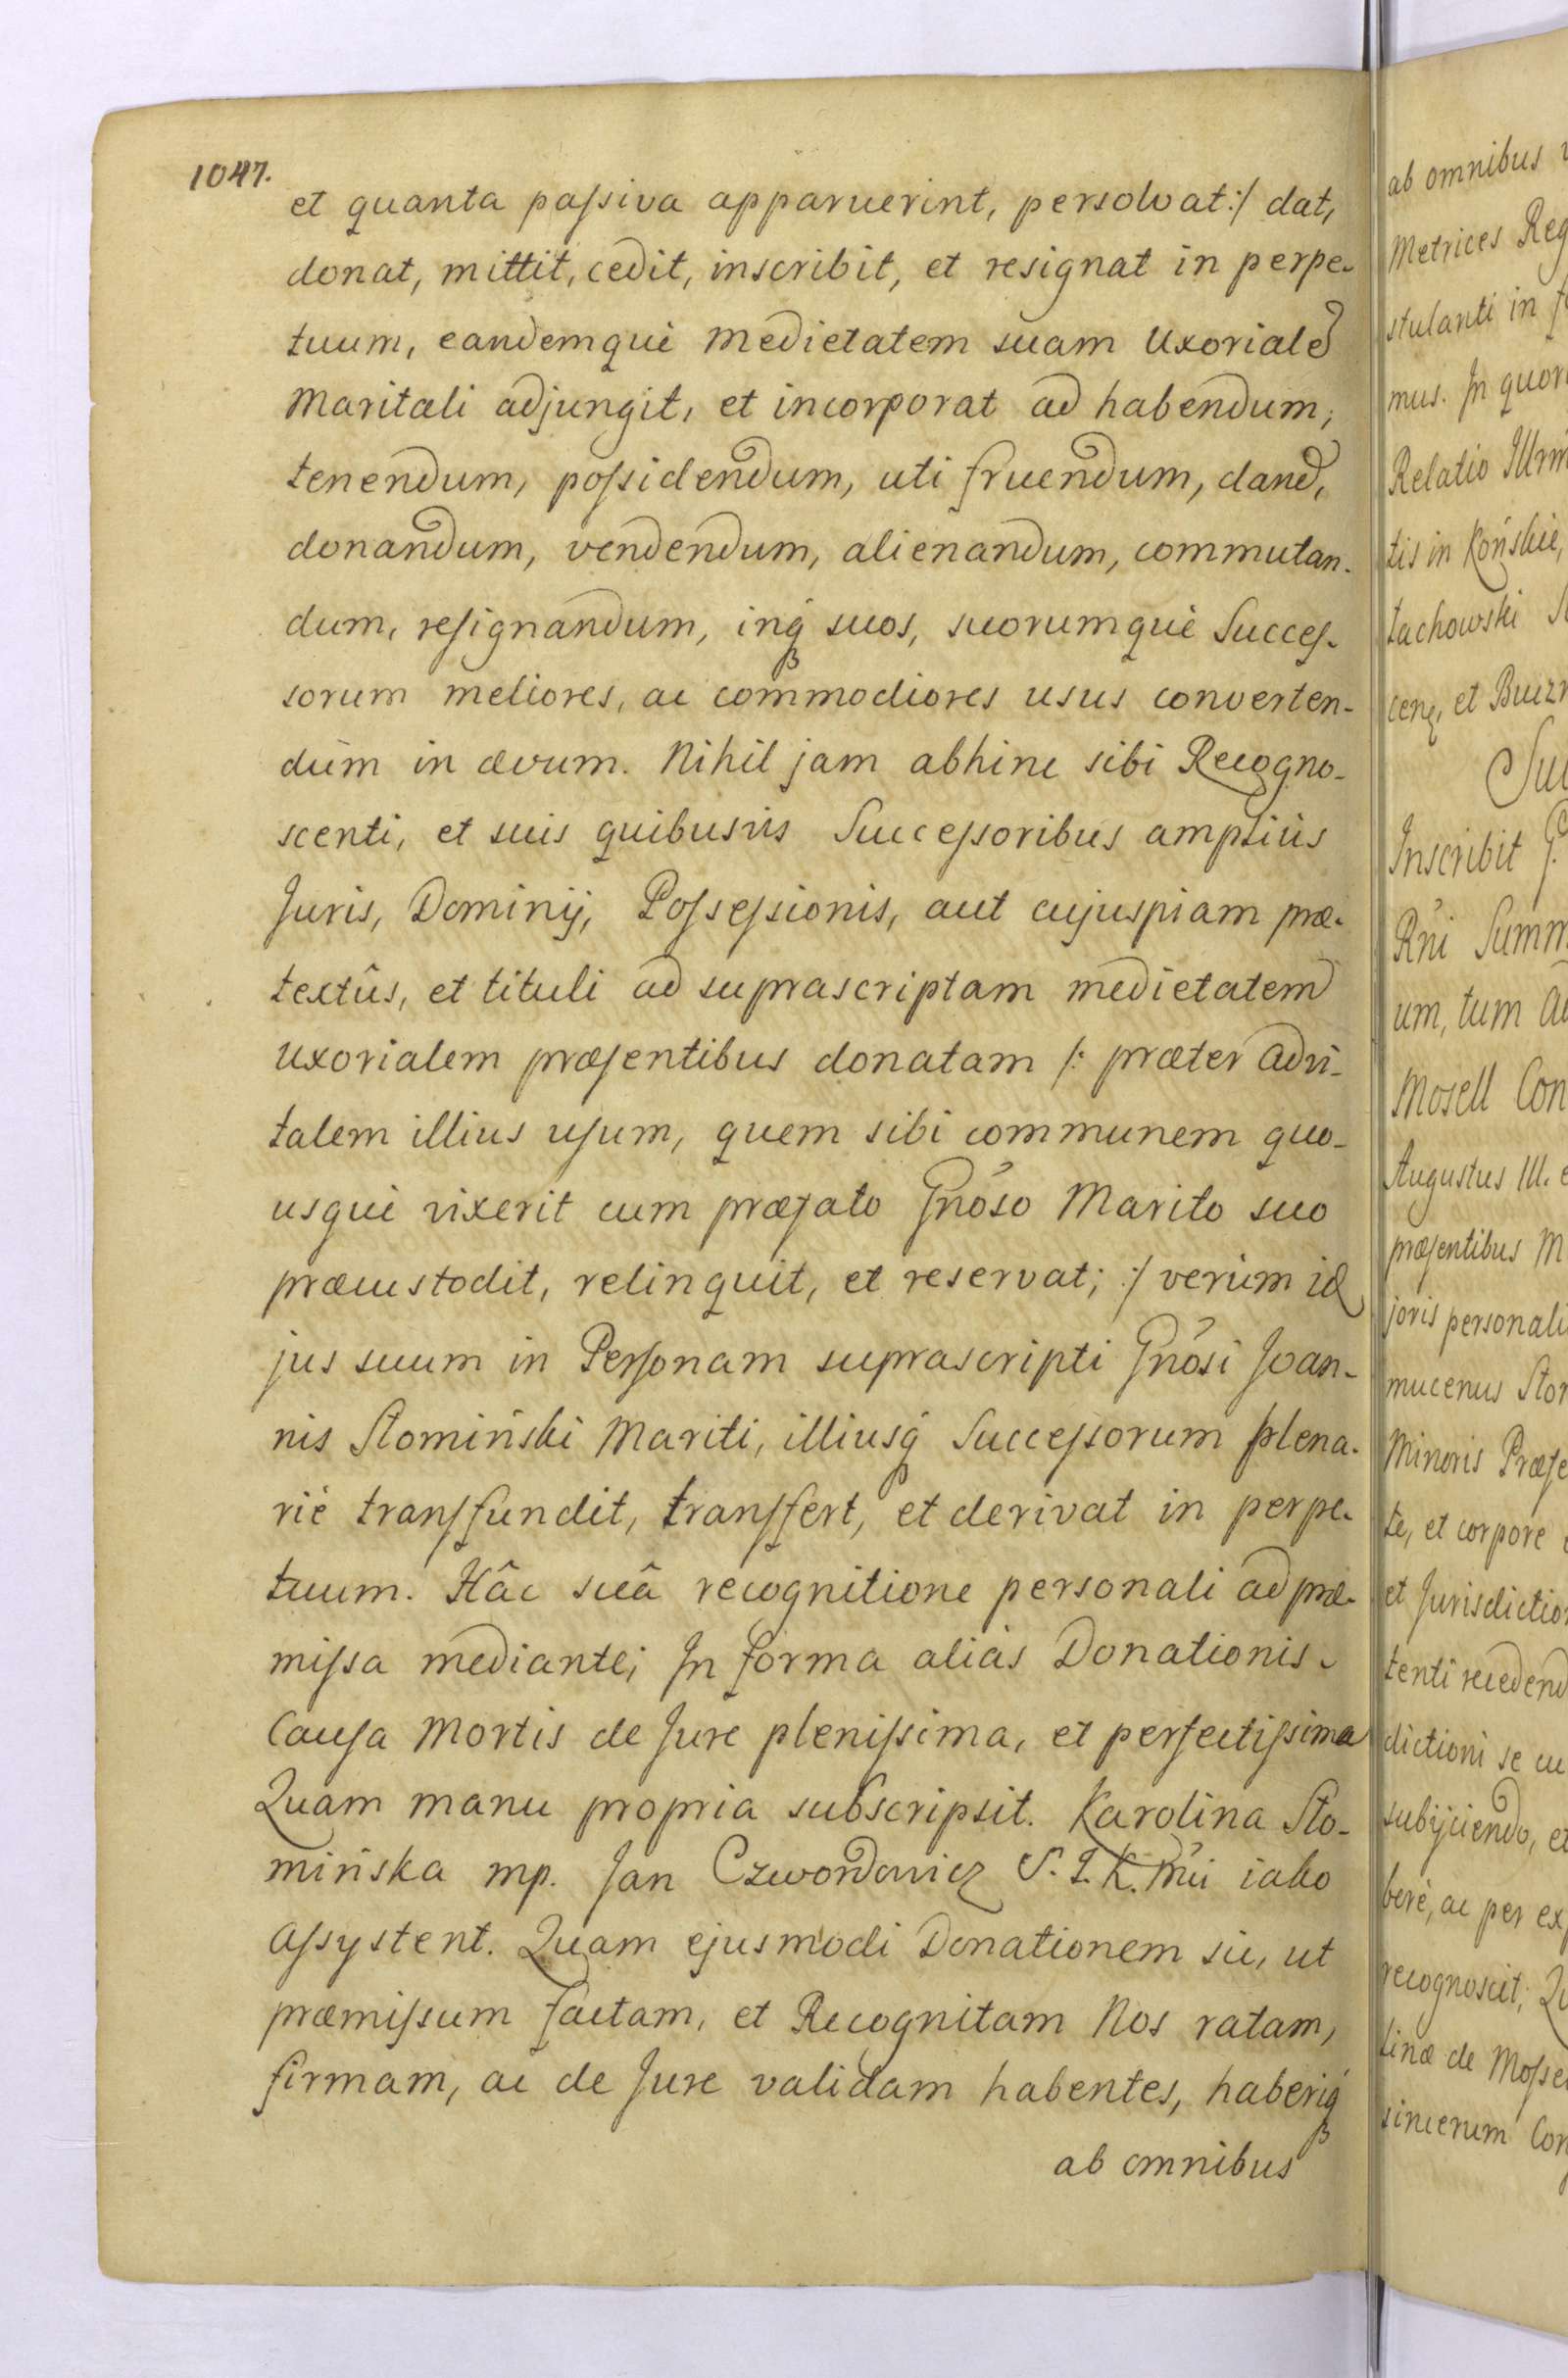 1047.
et quanta passiva apparuerint, persolvat:/ dat,
donat, mittit, cedit, inscribit, et resignat in perpe-
tuum, eandemquè Medietatem suam Uxorialē
Maritali adjungit, et incorporat ad habendum,
tenendum, possidendum, uti fruendum, dand,
donandum, vendendum, alienandum, commutan-
dum, resignandum, inq́ suos, suorumquè Succes-
sorum meliores, ac commodiores usus converten-
dùm in ævum. Nihil jam abhinc sibi Recogno-
scenti, et suis quibusvis Successoribus ampliùs
Juris, Dominij, Possessionis, aut cujuspiam præ-
textûs, et tituli ad suprascriptam medietatem
Uxorialem præsentibus donatam /: præter advi-
talem illius usum, quem sibi communem quo-
usquè vixerit cum præfato Gnõso Marito suo
præcustodit, relinquit, et reservat; :/ verùm id
jus suum in Personam suprascripti Gnõsi Joan-
nis Słomiński Mariti, illiusq́ Successorum plena-
riè transfundit, transfert, et derivat in perpe-
tuum. Hâc suâ recognitione personali ad præ-
missa mediante; In forma aliàs Donationis
Causa Mortis de Jure plenissima, et perfectissima
Quam manu propria subscripsit. Karolina Sło-
mińska mp. Jan Czwordowicz S. J. K. Mci iako
Assystent. Quam ejusmodi Donationem sic, ut
præmissum factam, et Recognitam Nos ratam,
firmam, ac de Jure validam habentes, haberiq́
ab omnibus
ab omnibus
Metrices Reg
stulanti in
mus. In quor
Relatio Illrm
tis in Końskie,
łachowski
et Buzr
Inscribit
Rńi Summ
um, tum
Mosell Con
Augustus III.
præsentibus M
joris personali
mucenus
Minoris Præse
te, et corpore
et Jurisdictio
tenti recedend
dictioni se cu
subijciendo, et
berè, ac per ex
recognoscit; Qu
linæ de Mosse
sincerum Con